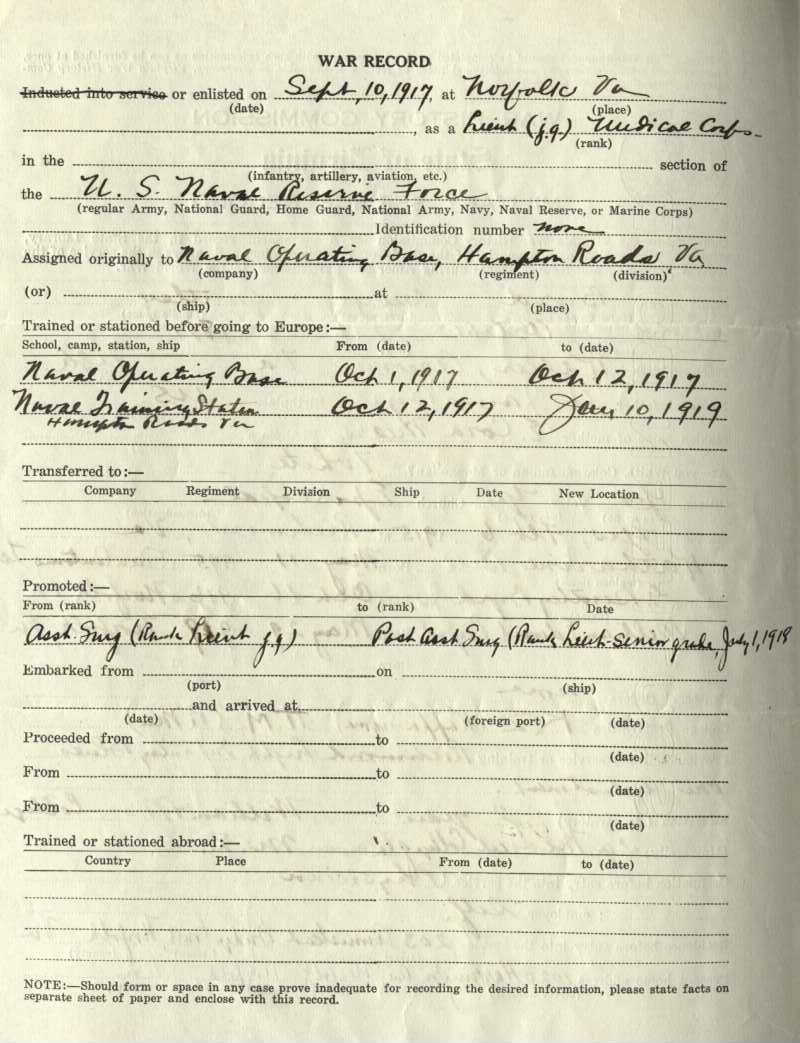 WAR RECORD
Inducted into service or enlisted on Sept, 10, 1917, at Norfolk Va
(date) (place)
, as a Lieut (j.g.) Medical Corps
(rank)
in the section of
(infantry, artillery, aviation, etc.)
the U. S. Naval Reserve Force
(regular Army, National Guard, Home Guard, National Army, Navy, Naval Reserve, or Marine Corps)
Identification number none
Assigned originally to Naval Operating Base, Hampton Roads Va
(company) (regiment) (division)
(or) at
(ship) (place)
Trained or stationed before going to Europe:—
School, camp, station, ship From (date) to (date)
Naval Operating Base Oct 1, 1917 Oct 12, 1917
Naval Training Station Oct 12, 1917 Jany 10, 1919
Hampton Roads Va
Transferred to:—
Company Regiment Division Ship Date New Location
Promoted:—
From (rank) to (rank) Date
Asst. Surg (Rank Lieut j.g.) Past Asst Surg (Rank Lieut-senior grade, July 1, 1918
Embarked from on
(port) (ship)
and arrived at
(date) (foreign port) (date)
Proceeded from to
(date)
From to
(date)
From to
(date)
Trained or stationed abroad:—
Country Place From (date) to (date)
NOTE:—Should form or space in any case prove inadequate for recording the desired information, please state facts on
separate sheet of paper and enclose with this record.